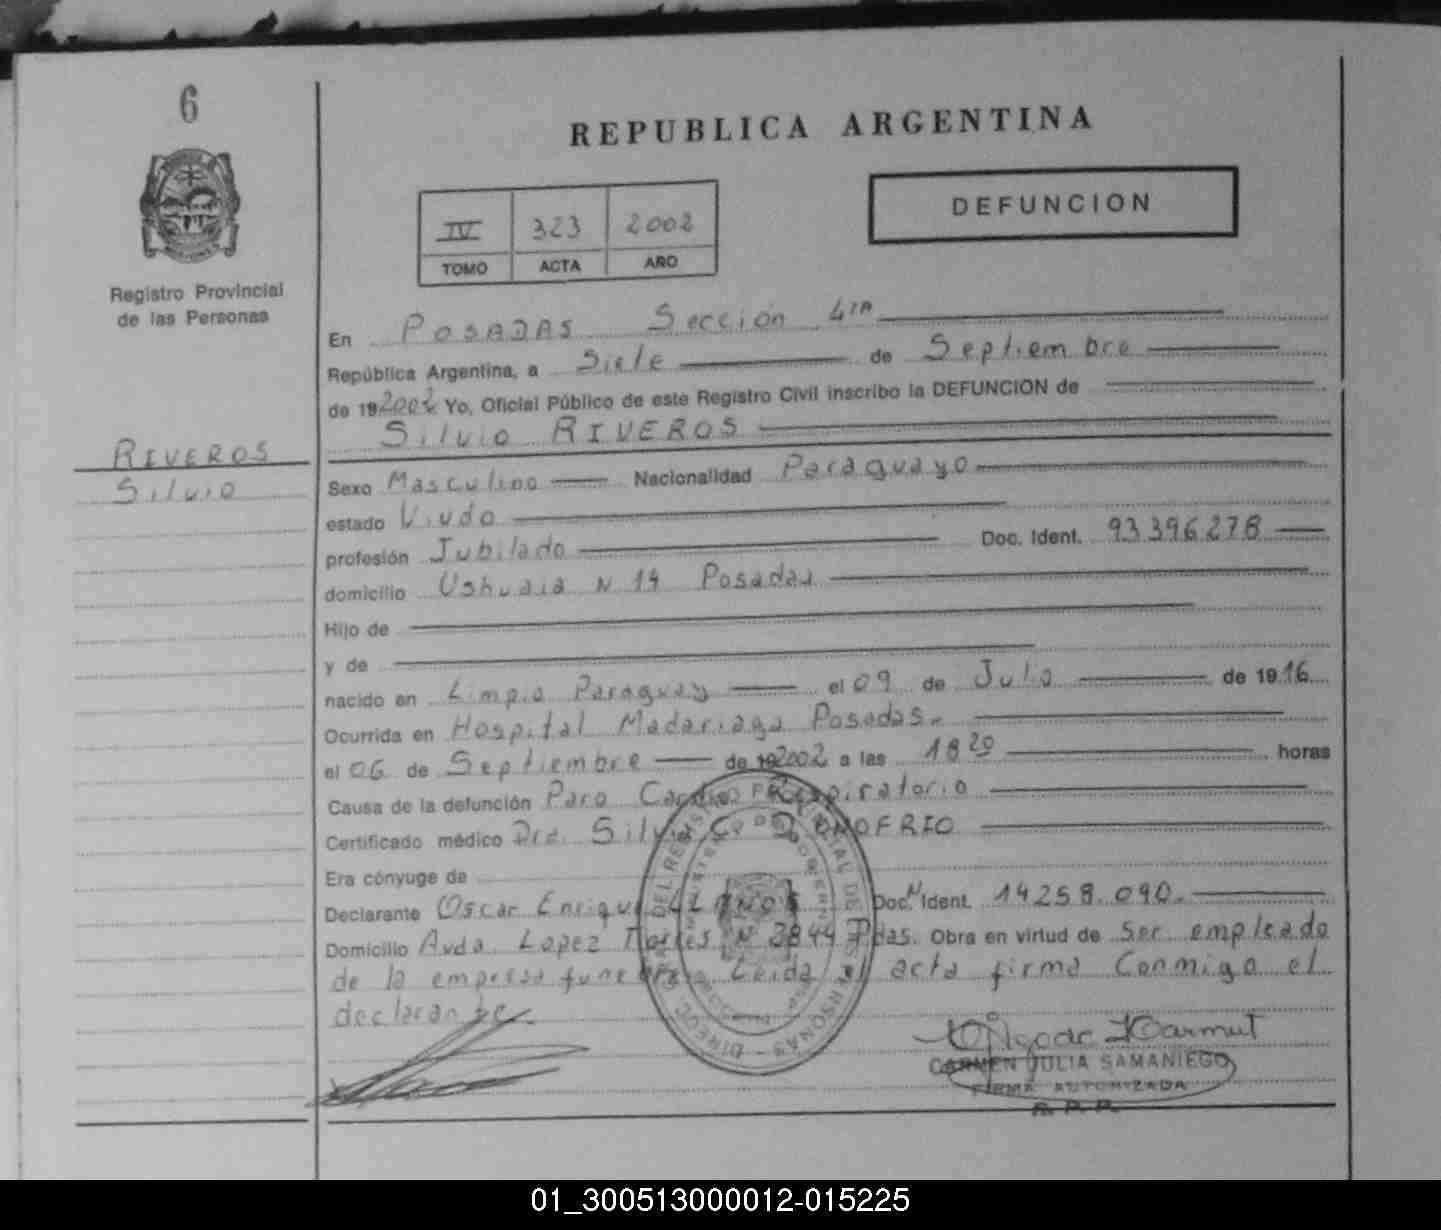 6
REPUBLICA ARGENTINA
DEFUNCION
IV 323 2002
TOMO ACTA AÑO
Registro Provincial
de las Personas
En POSADAS Sección 4TA
República Argentina, a Siete de Septiembre
de 192002 Yo, Oficial Público de este Registro Civil inscribo la DEFUNCION de
Silvio RIVEROS
RIVEROS
Silvio
Sexo Masculino Nacionalidad Paraguayo
estado Viudo
profesión Jubilado Doc. Ident. 93396278
domicilio Ushuaia N 14 Posadas
Hijo de
y de
nacido en Limpio Paraguay el 09 de Julio de 1916
Ocurrida en Hospital Madariaga Posadas.
el 06 de Septiembre de 192002 a las 18 20 horas
Causa de la defunción Paro Cardio Respiratorio
Certificado médico Dra. Silvia C. D'ONOFRIO
Era cónyuge de
Declarante Oscar Enrique LLANOS Doc. Ident. N 14258.090.
Domicilio Avda. Lopez Torres N 3844 Pdas. Obra en virtud de ser empleado
de la empresa funebre. Leida el acta firma Conmigo el
declarante.
CARMEN JULIA SAMANIEGO
FIRMA AUTORIZADA
R. P. P.
01_300513000012-015225